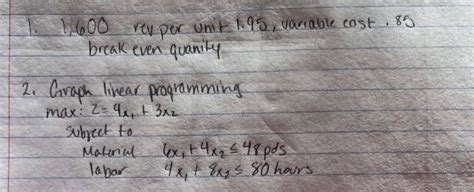 1. 1,600 rev per unit 1.95, variable cost .85
break even quanity
2. Graph linear programming
max: Z = 4x₁ + 3x₂
Subject to
Material 6x₁ + 4x₂ ≤ 48 pds
labar 4x₁ + 8x₂ ≤ 80 hours